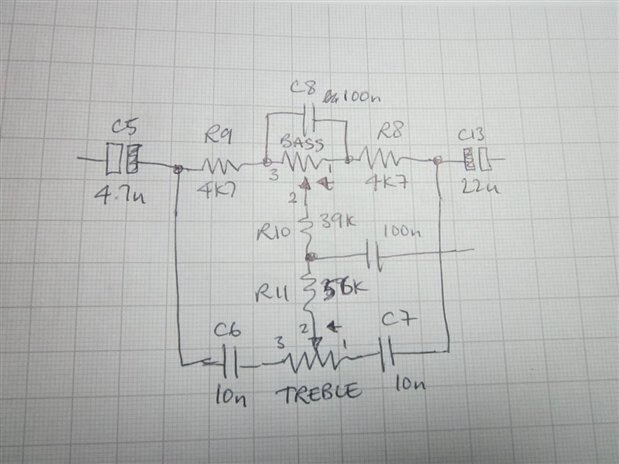 C8
100n
C5
R9
BASS
R8
C13
3
1
4K7
4K7
4.7u
22u
2
R10
39K
100n
R11
56K
C6
2
C7
3
1
10n
TREBLE
10n